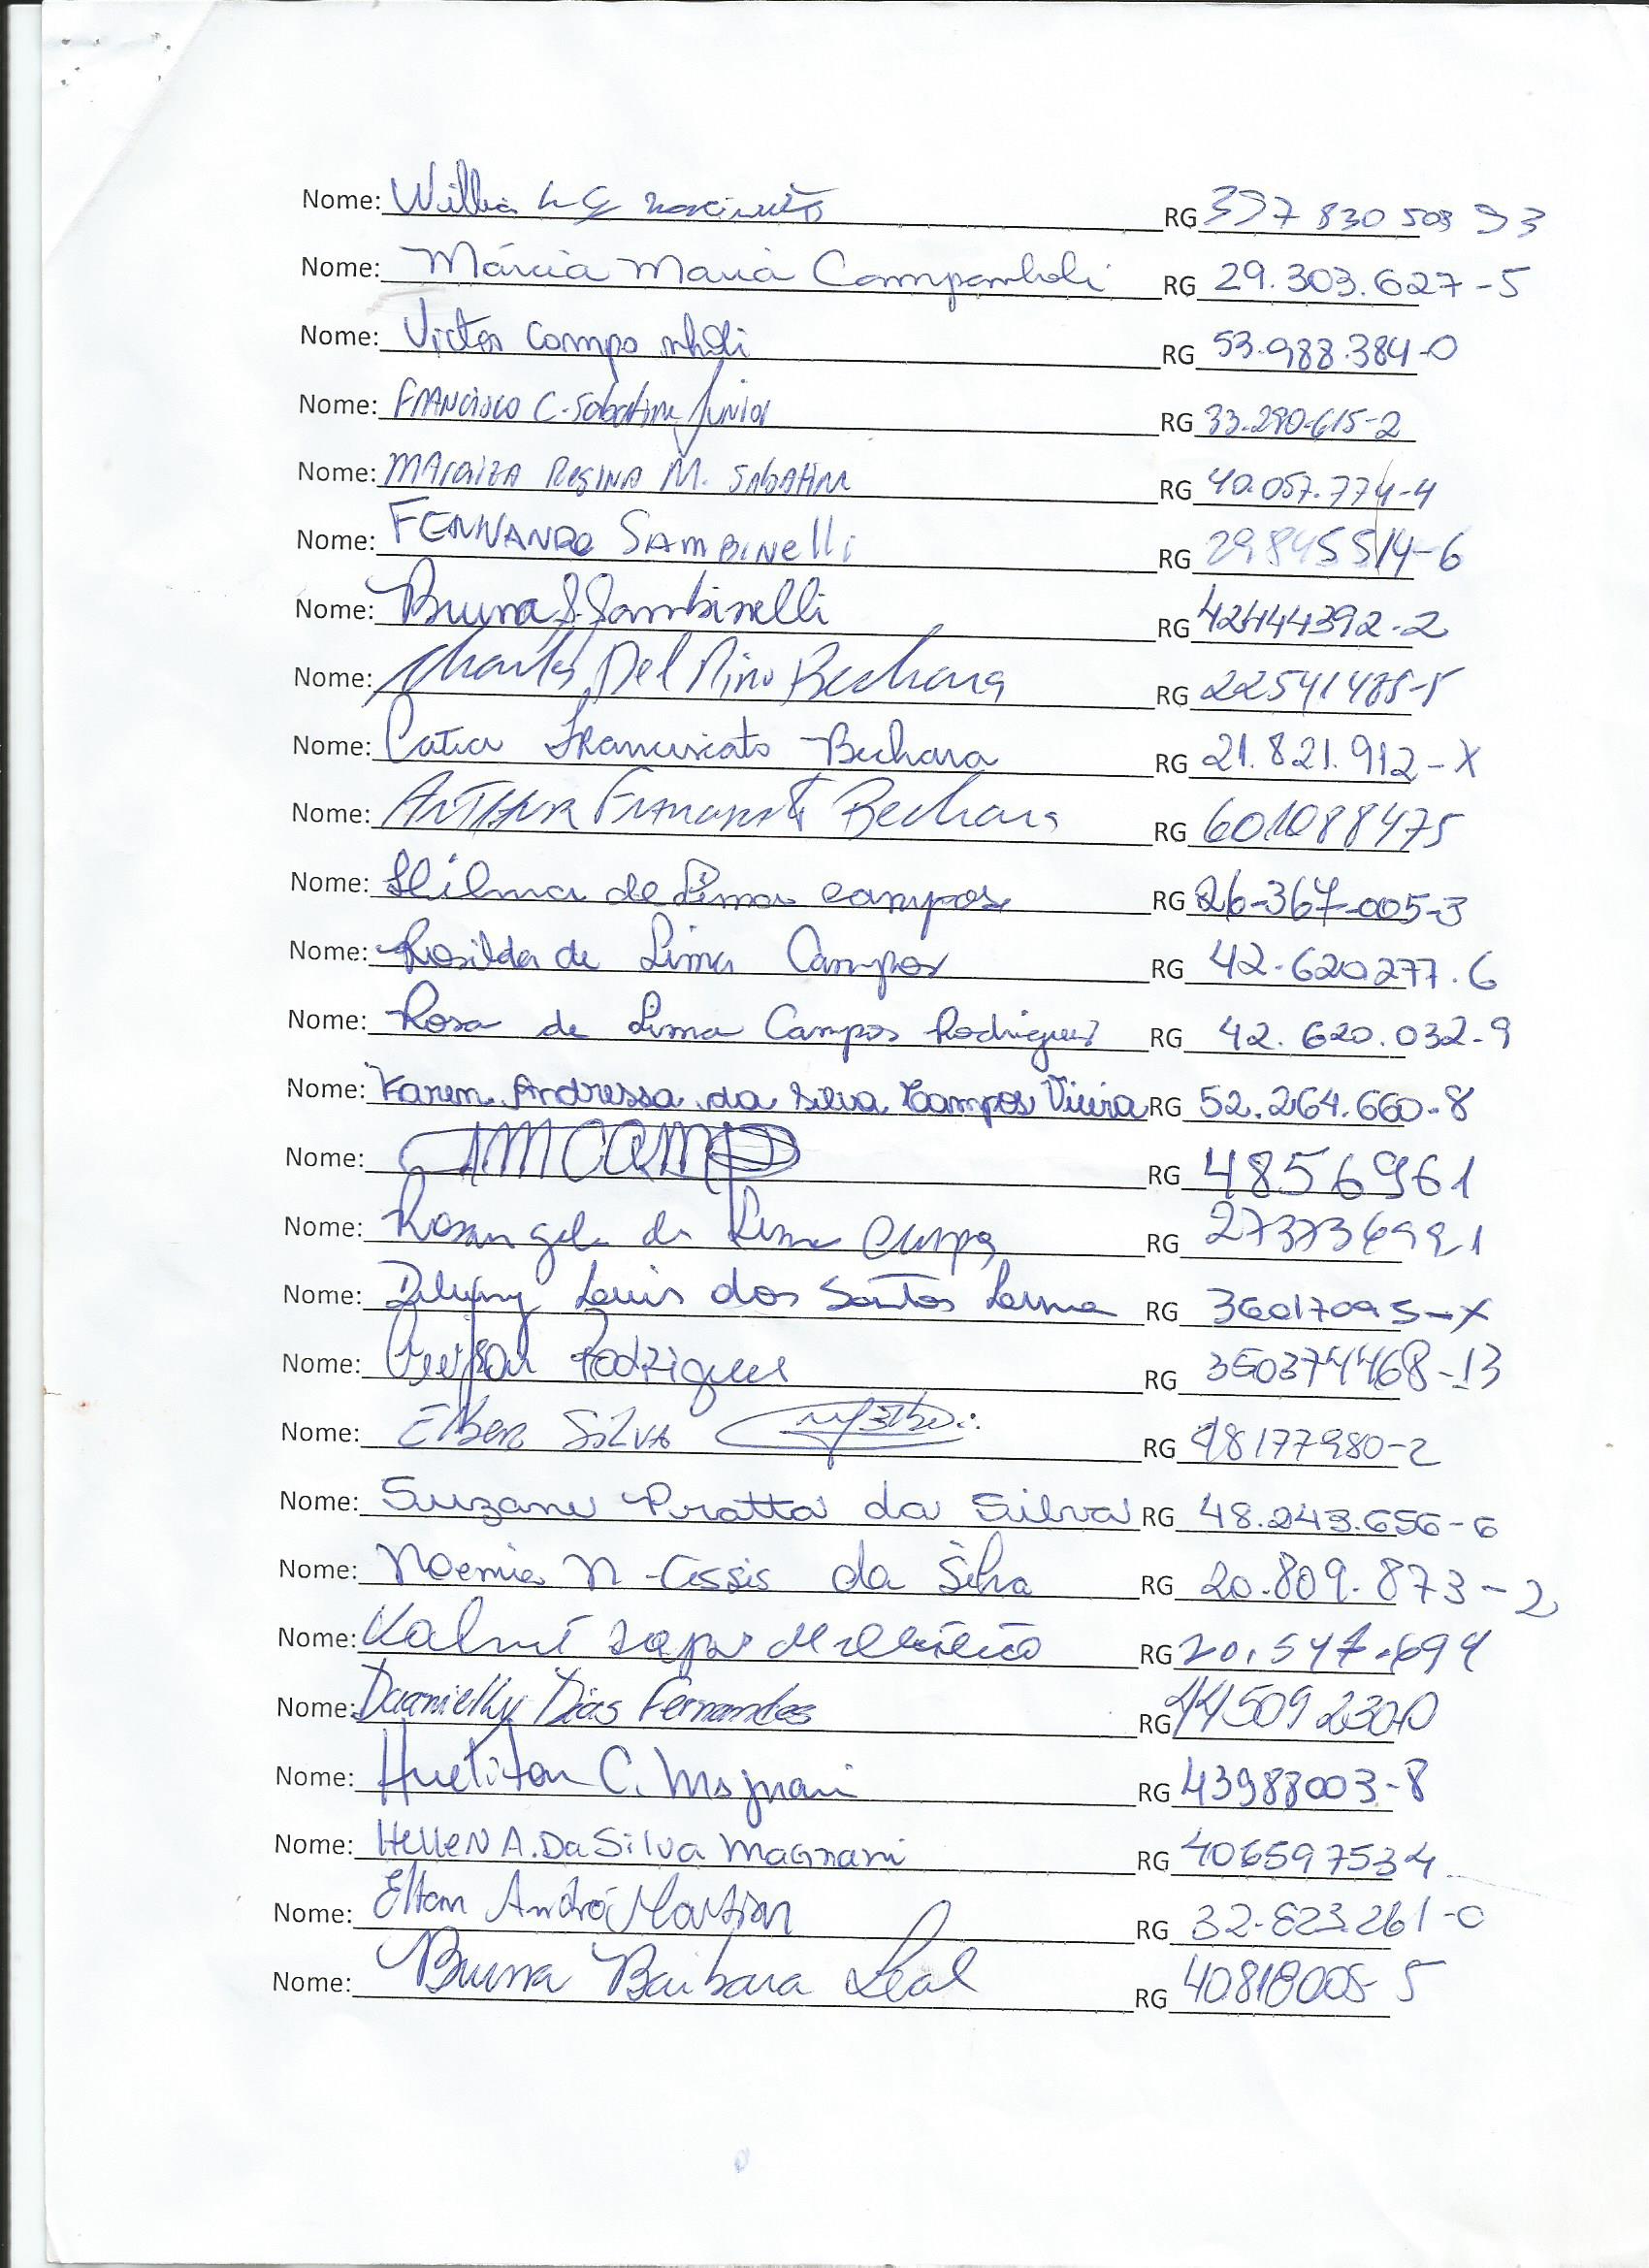 Nome: RG 397 830 508 93
Nome: Márcia Maria Companholi RG 29.303.627-5
Nome: Victor Companholi RG 53.988.384-0
Nome: FRANCISCO C. Sabatini Junior RG 33.290.615-2
Nome: MARAIZA REGINA M. SABATINI RG 40.057.774-4
Nome: FERNANDO SAMBINELLI RG 29845514-6
Nome: Bruna S. Sambinelli RG 42444392-2
Nome: Charles Del Nino Bechara RG
Nome: Catia Franciscato Bechara RG 21.821.912-X
Nome: ARTHUR Franciscato Bechara RG 601088475
Nome: Hilma de Lima campos RG 26-367-005-3
Nome: Rosilda de Lima Campos RG 42.620277.6
Nome: Rosa de Lima Campos Rodrigues RG 42.620.032-9
Nome: Karen Andressa da Silva Campos Vieira RG 52.264.660-8
Nome: RG 48569961
Nome: Rosangela de Lima RG
Nome: Luis dos Santos Lima RG 36017095-X
Nome: Rodrigues RG
Nome: Elber SILVA RG 48177980-2
Nome: Suzane Pratta da Silva RG 48.243.656-6
Nome: Noemia N. Assis da Silva RG 20.809.873-2
Nome: RG 20.547.694
Nome: Danielly Dias Fernandes RG
Nome: C. Magnani RG 43988003-8
Nome: HELLEN A. Da Silva Magnani RG 406597534
Nome: Elton André Martins RG 32.823.261-0
Nome: Bruna Barbara Leal RG 40818005-5